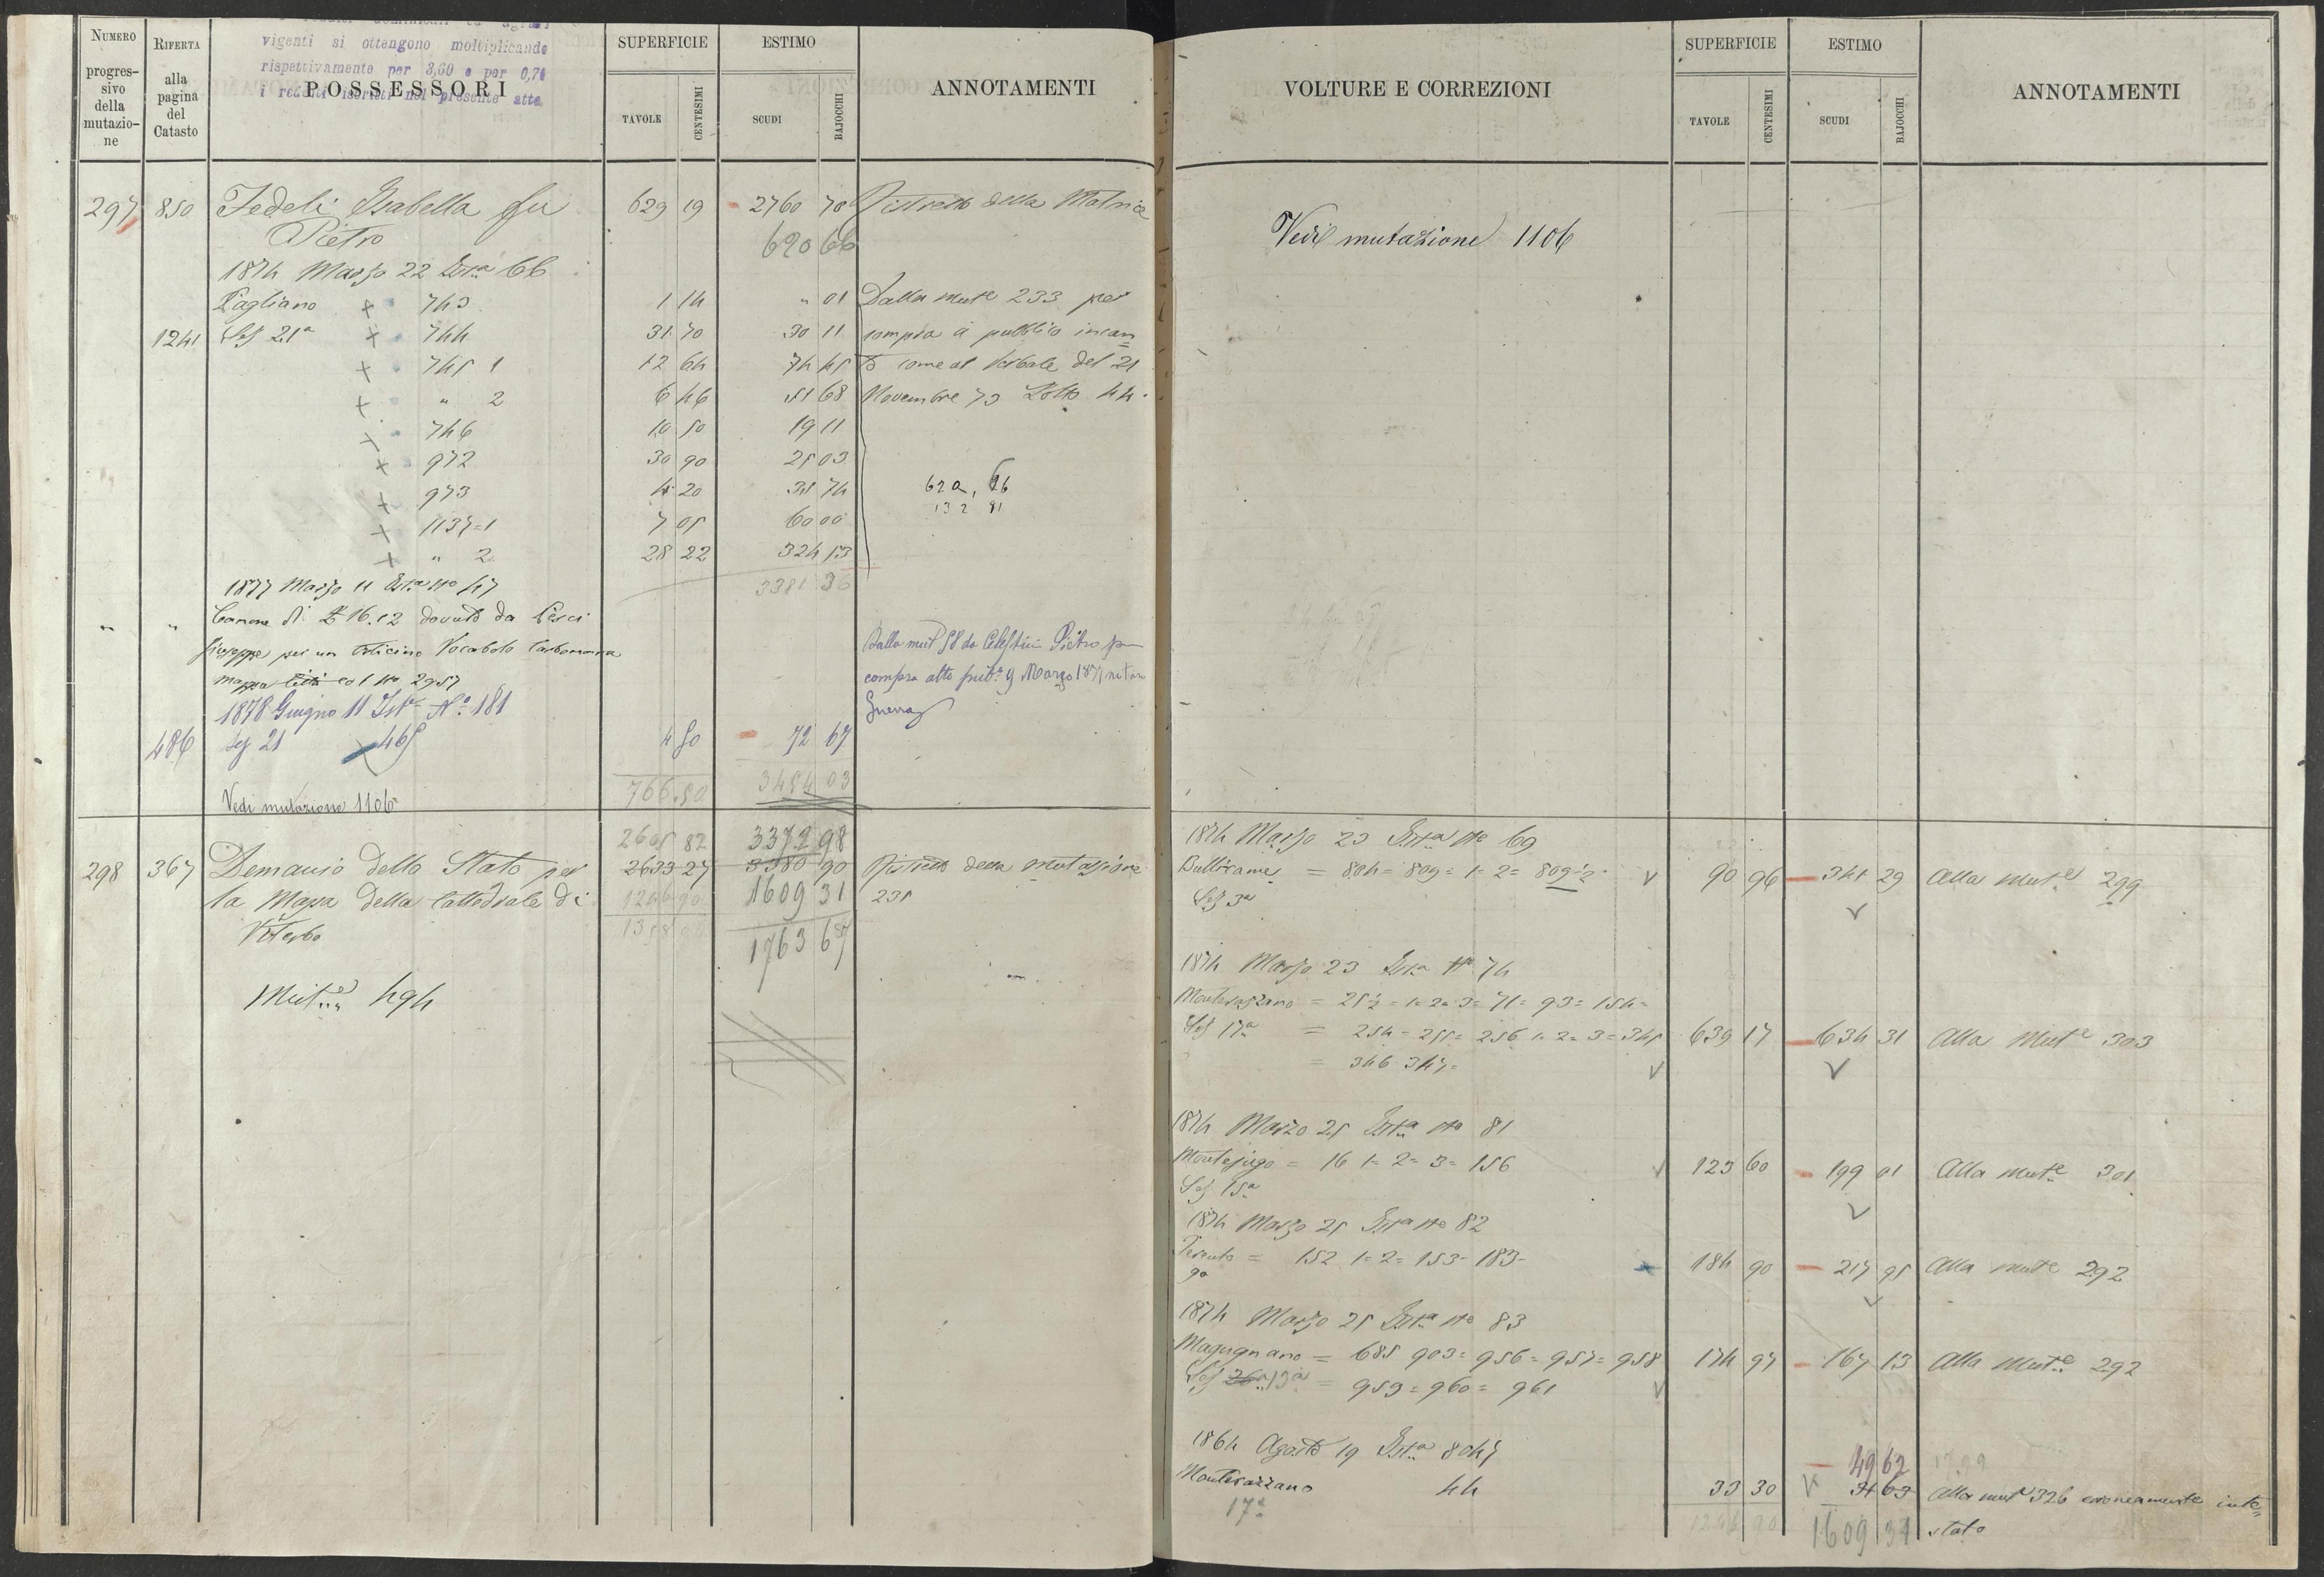 NUMERO progressivo della mutazione
RIFERTA alla pagina del Catasto
vigenti si ottengono moltiplicando
rispettivamente per 3,60 e per 0,71
i redditi iscritti nel presente atto
POSSESSORI
SUPERFICIE
TAVOLE
CENTESIMI
ESTIMO
SCUDI
BAJOCCHI
ANNOTAMENTI
297 850 Fedeli Isabella fu 629 19 2760 70 Ristretto della Matrice
Pietro 620 66
1874 Marzo 22 Ista 66
Pagliano + 743 1 14 " 01 Dalla mute 233 per
1241 Sez 21a + 744 31 70 30 11 compra a pubblico incan=
+ 745 1 12 64 74 45 to come al Verbale del 21
+ " 2 6 46 51 68 Novembre 73 Lotto 44.
+ 746 10 50 19 11
+ 972 30 90 25 03
+ 973 4 20 35 74 620,66
132 91
+ 1137=1 7 05 60 00
+ " 2 28 22 324 53
3381 36
1877 Marzo 11 Ista No 47
" " Canone di £ 16.12 dovuto da Pesci
Giuseppe per un Orticino Vocabolo
mappa Città col No 2957
Dalla mut 58 da Celestini Pietro per
compra atto pub.o 9 Marzo 1877 notaro
Guerra
1878 Giugno 11 Ista No 181
486 Sez 21 465 4 50 72 67
766.50 3454 03
Vedi mutazione 1106
2605 82 3372 98
298 367 Demanio dello Stato per 2633 27 3380 90 Ristretto della mutazione
la Massa della Cattedrale di 1246 90 1609 31 235
Viterbo 1358 1763 67
Mute 494
VOLTURE E CORREZIONI
SUPERFICIE
TAVOLE
CENTESIMI
ESTIMO
SCUDI
BAJOCCHI
ANNOTAMENTI
Vedi mutazione 1106
1874 Marzo 23 Ista No 69
Bullicame = 804= 809= 1= 2= 809½ 90 96 341 29 Alla mute 299
Sez 3a
1874 Marzo 23 Ista No 74
Monterazzano = 25½ = 1= 2= 3= 71= 93= 154=
Sez 17a = 254= 255= 256 1= 2= 3= 345 639 17 634 31 Alla Mute 303
= 346 347=
1874 Marzo 25 Ista No 81
Montejugo = 16 1= 2= 3= 156 123 60 199 01 Alla mute 301
Sez 15a
1874 Marzo 25 Ista No 82
= 152 1= 2= 153= 183= 184 90 217 95 Alla mute 292
9a
1874 Marzo 25 Ista No 83
Magugnano = 685 903= 956= 957= 958 174 97 167 13 Alla Mute 292
Sez 26a 13a = 959= 960= 961
1864 Agosto 19 Ista 8047
49 62
Monterazzano 44 33 30 Alla mute 326 erroneamente inte=
17a 1246 90 1609 31 stato